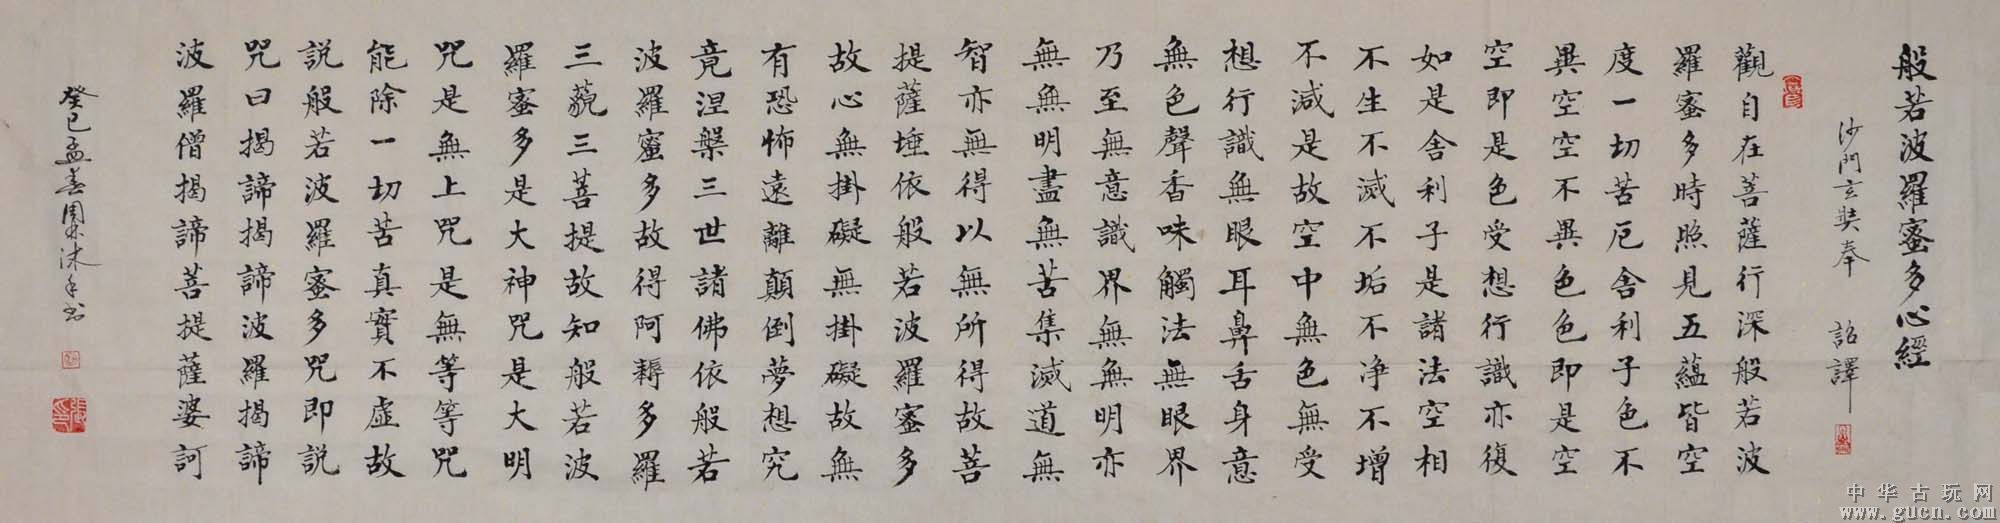 般若波羅蜜多心經
沙門玄奘奉 詔譯
觀自在菩薩行深般若波
羅蜜多時照見五蘊皆空
度一切苦厄舍利子色不
異空空不異色色即是空
空即是色受想行識亦復
如是舍利子是諸法空相
不生不滅不垢不净不增
不減是故空中無色無受
想行識無眼耳鼻舌身意
無色聲香味觸法無眼界
乃至無意識界無無明亦
無無明盡無苦集滅道無
智亦無得以無所得故菩
提薩埵依般若波羅蜜多
故心無掛礙無掛礙故無
有恐怖遠離顛倒夢想究
竟涅槃三世諸佛依般若
波羅蜜多故得阿耨多羅
三藐三菩提故知般若波
羅蜜多是大神咒是大明
咒是無上咒是無等等咒
能除一切苦真實不虛故
説般若波羅蜜多咒即説
咒曰揭諦揭諦波羅揭諦
波羅僧揭諦菩提薩婆訶
癸巳孟春周沐手书
中华古玩网
www.gucn.com